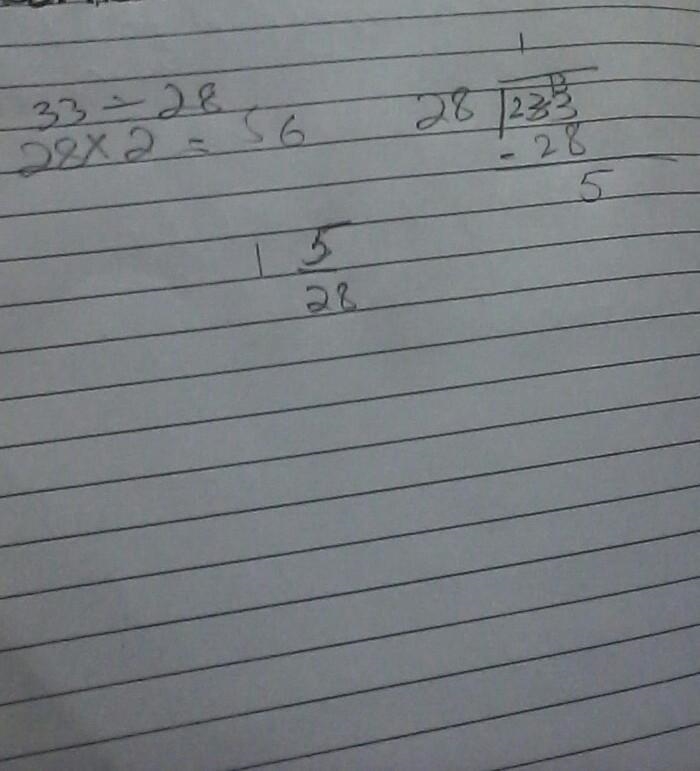 33 ÷ 28
28 × 2 = 56
1
28 33
- 28
5
1 5/28